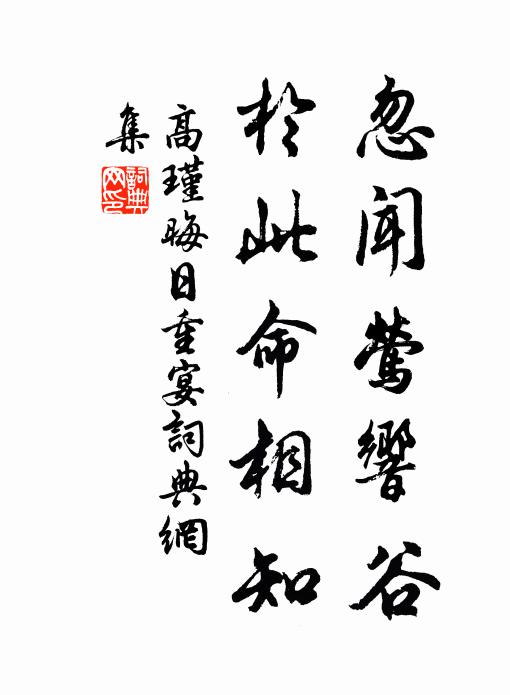 忽闻莺響谷
於此命相知
高瑾晦日重宴詞典網
集
詞典
网印